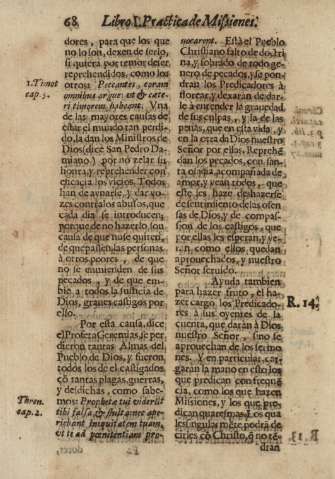 68. Libro I. Practica de Missiones.
dores, para que los que
no lo son, dexen de serlo,
si quiera por temor de ser
reprehendidos, como los
otros: Peccantes, coram
omnibus argue: ut & cæte-
ri timorem habeant. Una
de las mayores causas de
estar el mundo tan perdi-
do, la dan los Ministros de
Dios (dize San Pedro Da-
miano) por no zelar su
honra, y reprehender con
eficacia los vicios. Todos
han de avivarse, y dar vo-
zes contra los abusos, que
cada dia se introducen;
porque de no hazerlo, son
causa de que no se quiten,
de que passen las personas
à otros peores, de que
no se enmienden de sus
pecados, y de que em-
bie à todos la justicia de
Dios, graves castigos por
ello.
Por esta causa, dice
el Profeta Geremias se per-
dieron tantas Almas del
Pueblo de Dios, y fueron
todos los de el castigados,
cõ tantas plagas, guerras,
y desdichas, como sabe-
mos: Prophetæ tui viderũt
tibi falsa, & stulta, nec ape-
riebant iniquitatem tuam,
ut te ad pœnitentiam pro-
1. Timot
cap. 5.
Thren.
cap. 2.
vocarent. Està el Pueblo
Christiano falto de doctri-
na, y sobrado de todo ge-
nero de pecados, y se pon-
dran los Predicadores à
florear, y dexaràn de dar-
le à entender la gravedad
de sus culpas, y la de las
penas, que en esta vida, y
en la otra dà Dios nuestro
Señor por ellas. Reprehē
dan los pecados, con san-
ta osadia, acompañada de
amor, y vean todos, que
este les haze deshazerse
de sentimiento de las ofen
sas de Dios, y de compas-
sion de los castigos, que
por ellas les esperan, y ve-
ràn, como ellos quedan
aprovechados, y nuestro
Señor servido.
Ayuda tambien
para hazer fruto, el ha-
zer cargo, los Predicado-
res à sus oyentes de la
cuenta, que daràn à Dios
nuestro Señor, sino se
aprovechan de los termo-
nes. Y en particular, car-
garàn la mano en esto los
que predican con frequē
cia, como los que hazen
Missiones, y los que pre-
dican quaresmas. Los qua
les singularmēte podrà de-
cirles cõ Christo, q̃ no tē-
dran
R. 14.